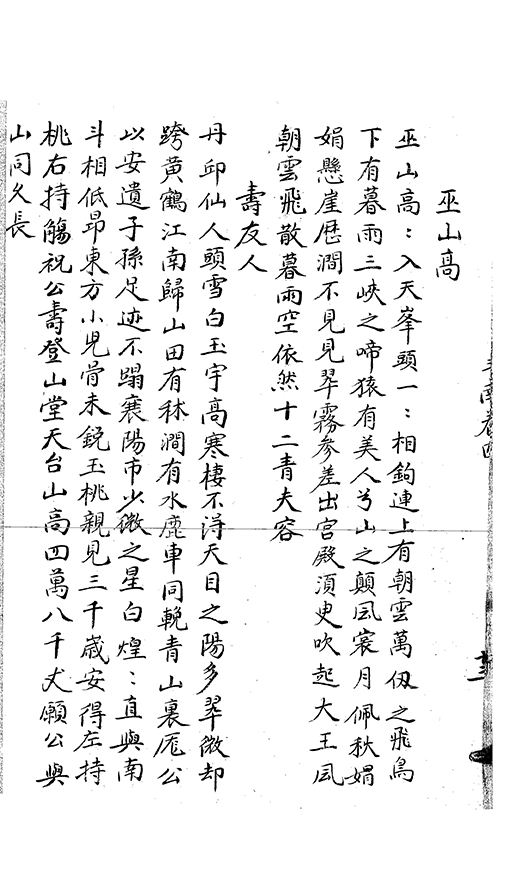 巫山高
巫山高〻入天峯頭一〻相鉤連上有朝雲萬仭之飛鳥
下有暮雨三峽之啼猿有美人兮山之顛風裳月佩秋娟
娟懸崖歷澗不見見翠霧參差出宫殿須臾吹起大王風
朝雲飛散暮雨空依然十二青夫容
壽友人
丹邱仙人頭雪白玉宇高寒棲不淂天目之陽多翠微却
跨黄鶴江南歸山田有秫澗有水鹿車同輓青山裏厖公
以安遺子孫足迹不蹋襄陽市少微之星白煌〻直與南
斗相低昻東方小児骨未銳玉桃親見三千歳安得左持
桃右持觴祝公壽登山堂天台山高四萬八千丈願公與
山同久長